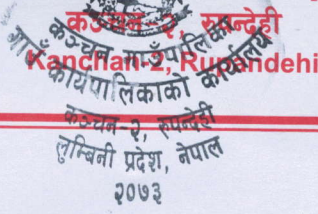 कञ्चन-२, रुपन्देही
Kanchan-2, Rupandehi
कञ्चन गाउँपालिका
गाउँ कार्यपालिकाको कार्यालय
कञ्चन-२, रुपन्देही
लुम्बिनी प्रदेश, नेपाल
२०७३